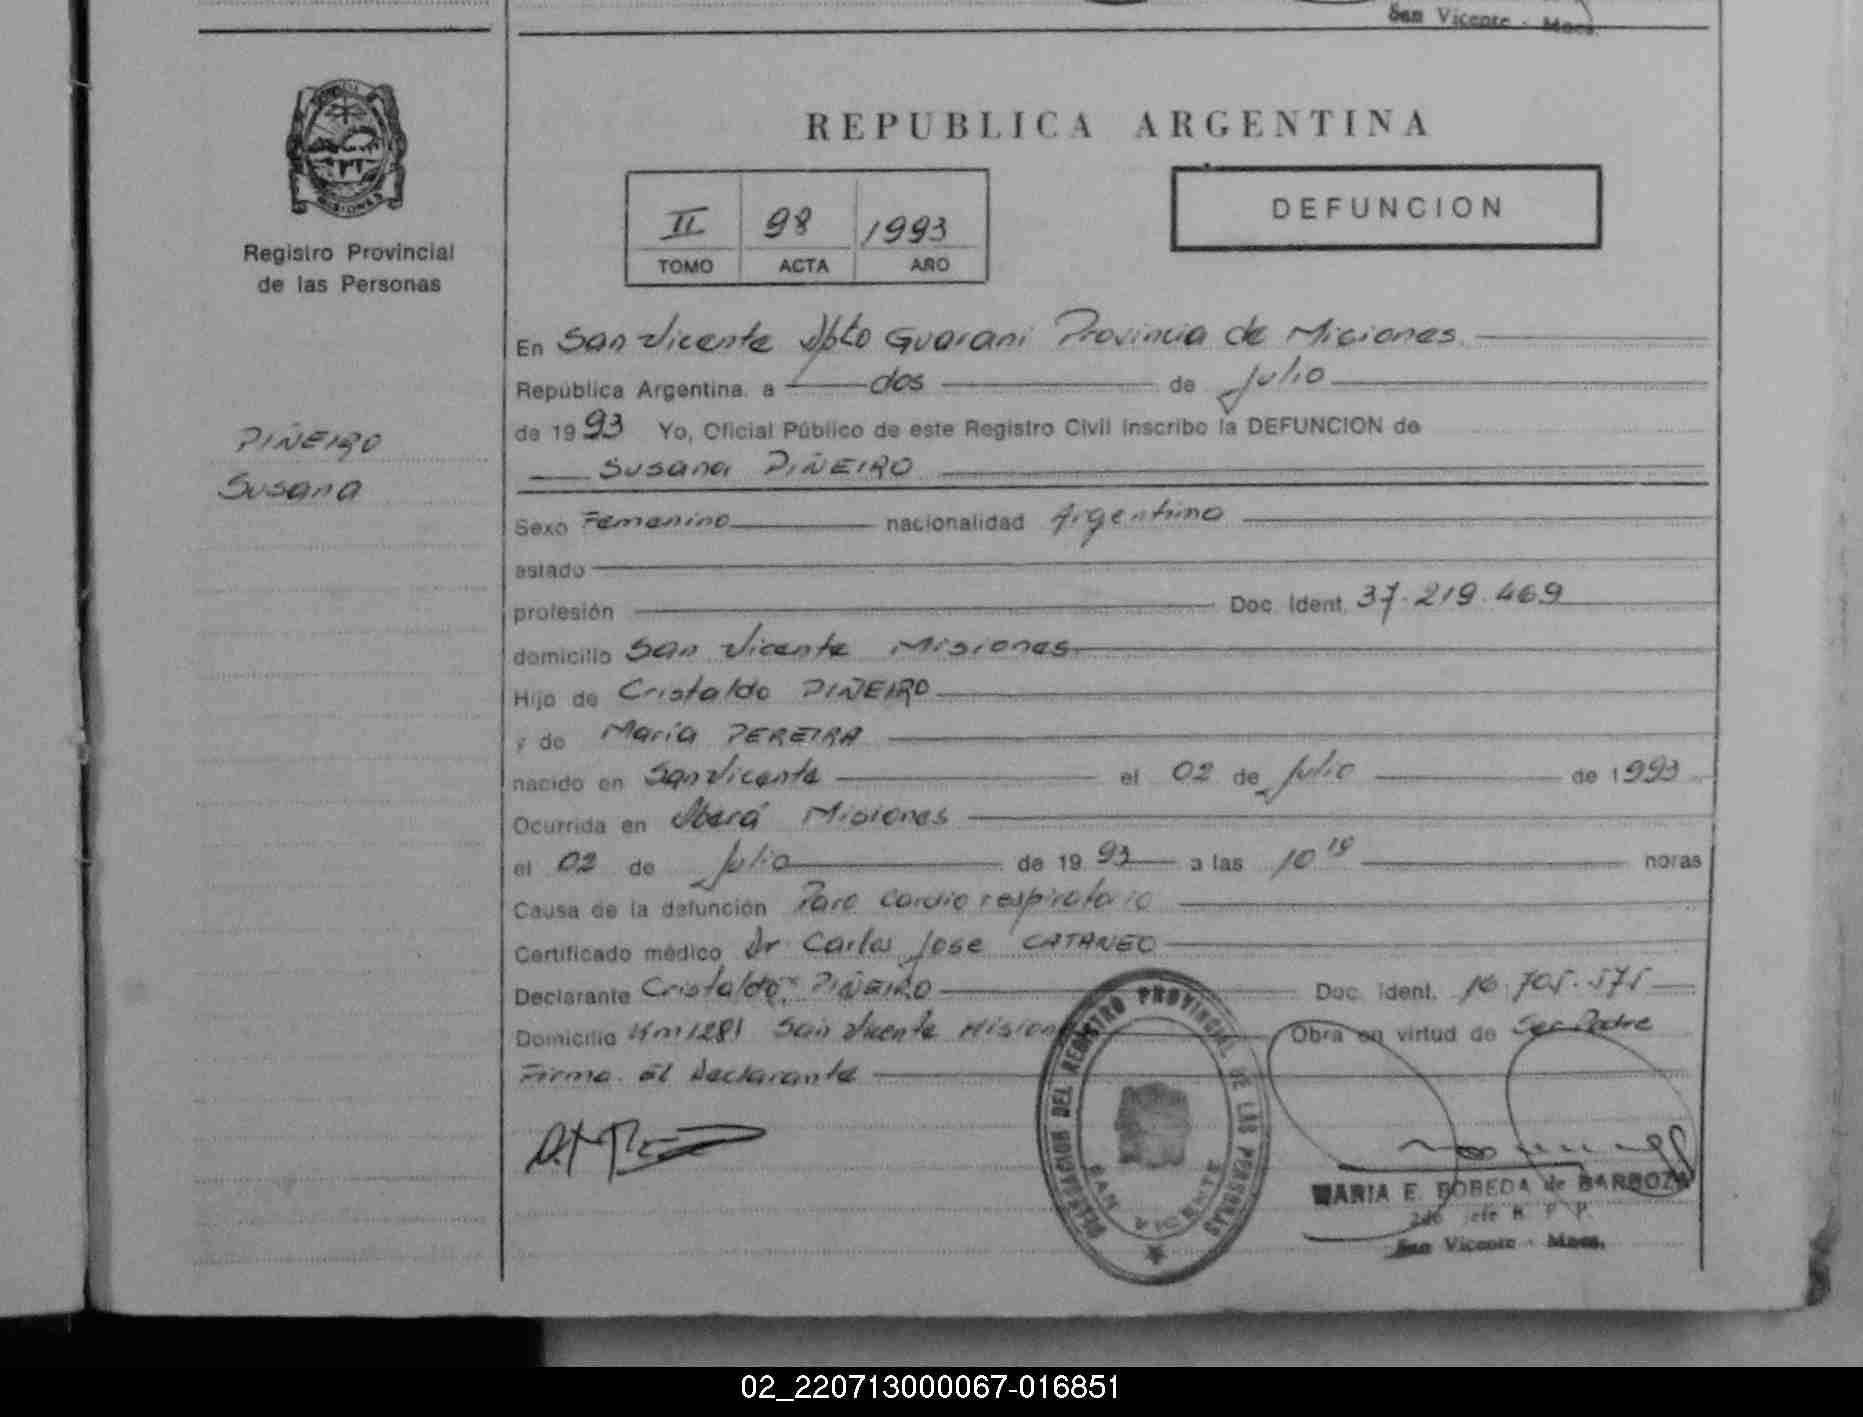 San Vicente - Mnes.
REPUBLICA ARGENTINA
MISIONES
Registro Provincial
de las Personas
II 98 1993
TOMO ACTA AÑO
DEFUNCION
En San Vicente Dpto Guarani Provincia de Miciones
República Argentina, a dos de Julio
de 1993 Yo, Oficial Público de este Registro Civil inscribo la DEFUNCION de
Susana PIÑEIRO
PIÑEIRO
Susana
Sexo Femenino nacionalidad Argentina
estado
profesión Doc. Ident. 37.219.469
domicilio San Vicente Misiones
Hijo de Cristaldo PIÑEIRO
y de María PEREIRA
nacido en San Vicente el 02 de Julio de 1993
Ocurrida en Oberá Misiones
el 02 de Julio de 1993 a las 10 19 horas
Causa de la defunción Paro cardio respiratorio
Certificado médico Dr. Carlos Jose CATANEO
Declarante Cristaldo PIÑEIRO Doc. Ident. 16.705.575
Domicilio Km 1281 San Vicente Mision Obra en virtud de Ser Padre
Firma. El Declarante
DELEGACION DEL REGISTRO PROVINCIAL DE LAS PERSONAS
SAN VICENTE
MARIA E. BOBEDA de BARBOZA
2do Jefe R. P. P.
San Vicente - Mnes.
02_220713000067-016851